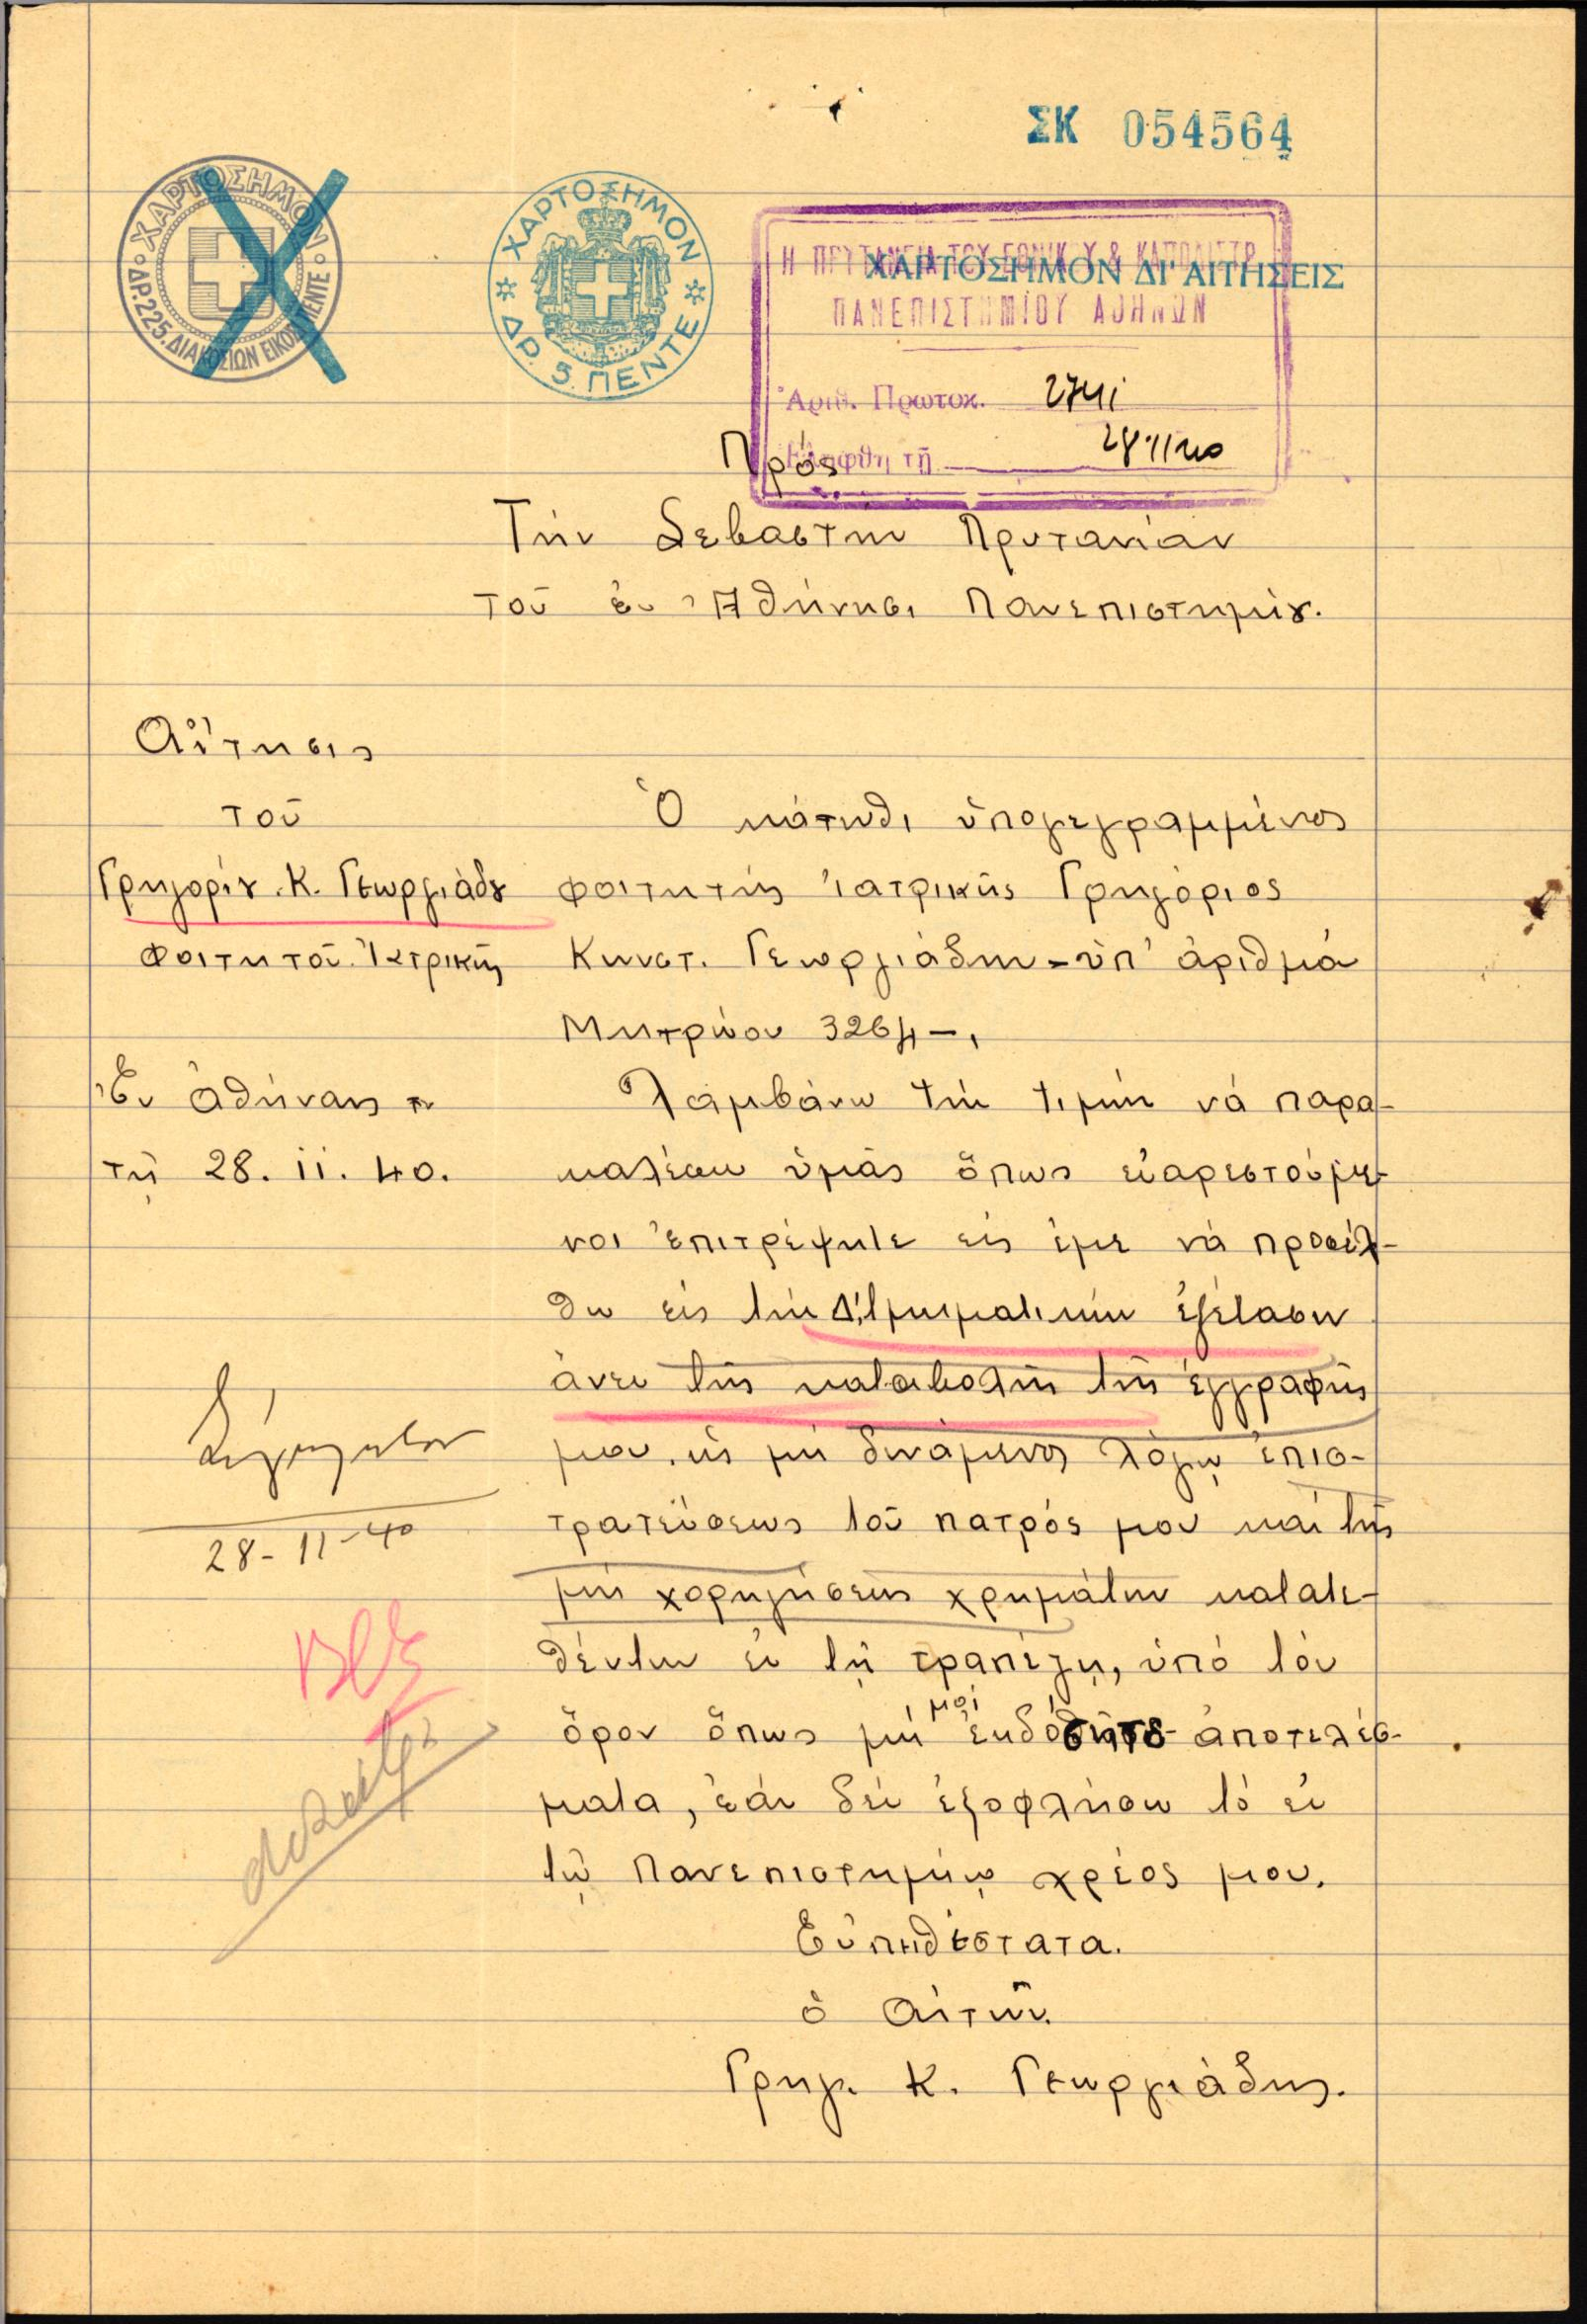 ΣΚ 054564
ΧΑΡΤΟΣΗΜΟΝ
ΔΡ.225.ΔΙΑΚΟΣΙΩΝ ΕΙΚΟΣΙ ΠΕΝΤΕ
ΧΑΡΤΟΣΗΜΟΝ
ΔΡ. 5. ΠΕΝΤΕ
ΧΑΡΤΟΣΗΜΟΝ ΔΙ' ΑΙΤΗΣΕΙΣ
Η ΠΡΥΤΑΝΕΙΑ ΤΟΥ ΕΘΝΙΚΟΥ & ΚΑΠΟΔΙΣΤΡ
ΠΑΝΕΠΙΣΤΗΜΙΟΥ ΑΘΗΝΩΝ
Ἀριθ. Πρωτοκ.
Ἐλήφθη τῇ 28/11/40
Πρός
Τὴν Σεβαστὴν Πρυτανείαν
τοῦ ἐν Ἀθήνησι Πανεπιστημίου.
Αἴτησις
τοῦ
Γρηγορίου Κ. Γεωργιάδου
Φοιτητοῦ Ἰατρικῆς
Ἐν Ἀθήναις
τῇ 28. 11. 40.
Ὁ κάτωθι ὑπογεγραμμένος
φοιτητὴς Ἰατρικῆς Γρηγόριος
Κωνστ. Γεωργιάδης - ὑπ' ἀριθμὸ
Μητρώου 3264 -,
Λαμβάνω τὴν τιμὴν νὰ παρα-
καλέσω ὑμᾶς ὅπως εὐαρεστούμε-
νοι ἐπιτρέψητε εἰς ἐμὲ νὰ προσέλ-
θω εἰς τὴν Δ! τμηματικὴν ἐξέτασιν
ἄνευ τῆς καταβολῆς τῆς ἐγγραφῆς
μου, ὡς μὴ δυνάμενος λόγῳ ἐπισ-
τρατεύσεως τοῦ πατρός μου καὶ τῆς
μὴ χορηγήσεως χρημάτων κατατε-
θέντων ἐν τῇ τραπέζῃ, ὑπὸ τὸν
ὅρον ὅπως μὴ μοὶ ἐκδόσητε ἀποτελέσ-
ματα, ἐὰν δὲν ἐξοφλήσω τὸ ἐν
τῷ Πανεπιστημίῳ χρέος μου.
Εὐπειθέστατα.
ὁ Αἰτῶν.
Γρηγ. Κ. Γεωργιάδης.
28-11-40